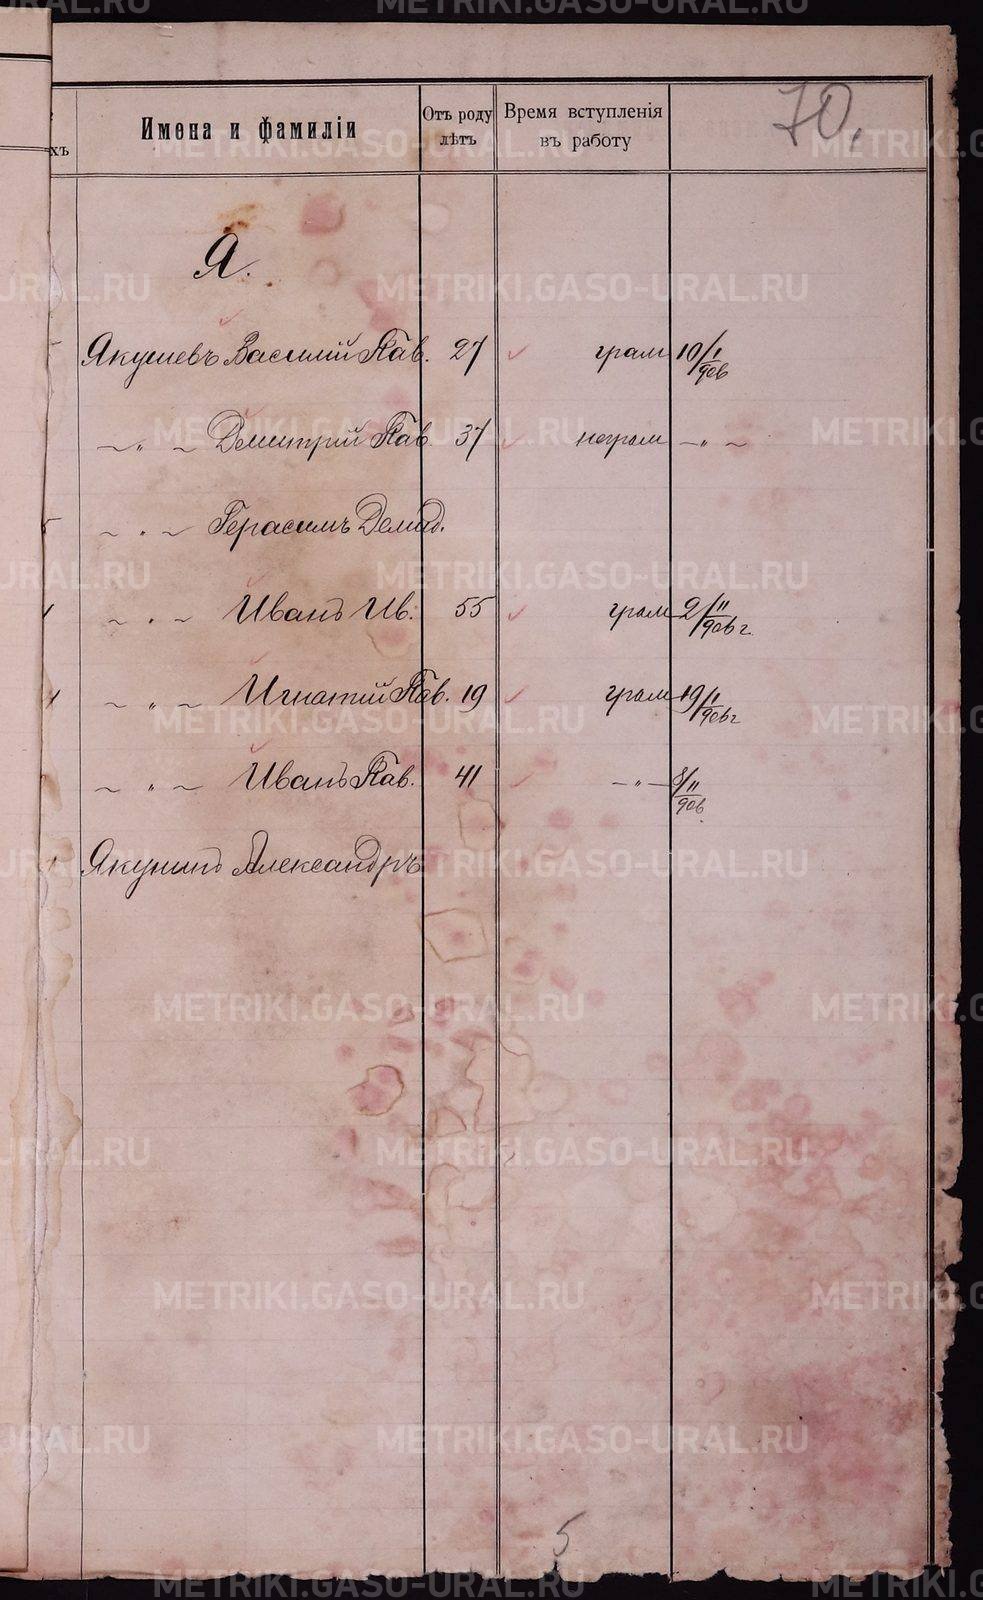 70.
хъ Имена и фамиліи Отъ роду лѣтъ Время вступленія въ работу
Я.
Якушевъ Василій Пав. 27 грам 10/I 906
— " — Дмитрій Пав. 37 неграм — " —
— " — Герасимъ Демид.
— " — Иванъ Ив. 55 грам 2/II 906 г.
— " — Игнатій Пав. 19 грам 19/I 906 г
— " — Иванъ Пав. 41 — " — 8/II 906
Якунинъ Александръ
5
METRIKI.GASO-URAL.RU